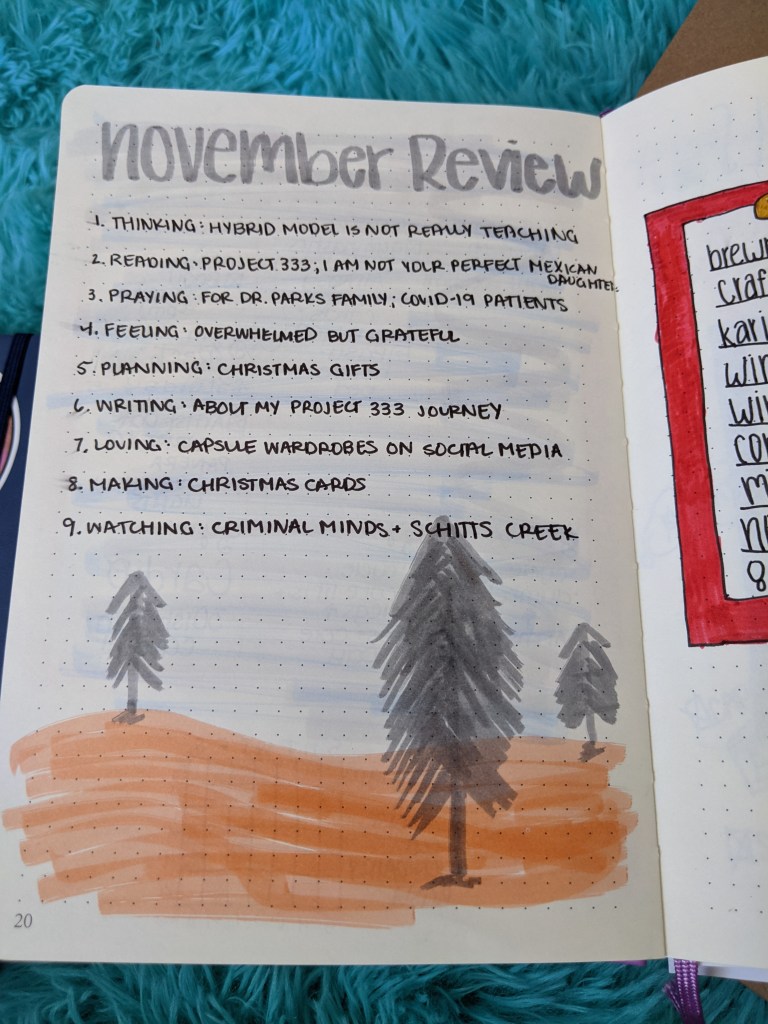 november Review
1. THINKING: HYBRID MODEL IS NOT REALLY TEACHING
2. READING: PROJECT 333; I AM NOT YOUR PERFECT MEXICAN
DAUGHTER
3. PRAYING: FOR DR. PARKS FAMILY; COVID-19 PATIENTS
4. FEELING: OVERWHELMED BUT GRATEFUL
5. PLANNING: CHRISTMAS GIFTS
6. WRITING: ABOUT MY PROJECT 333 JOURNEY
7. LOVING: CAPSULE WARDROBES ON SOCIAL MEDIA
8. MAKING: CHRISTMAS CARDS
9. WATCHING: CRIMINAL MINDS + SCHITTS CREEK
20
8